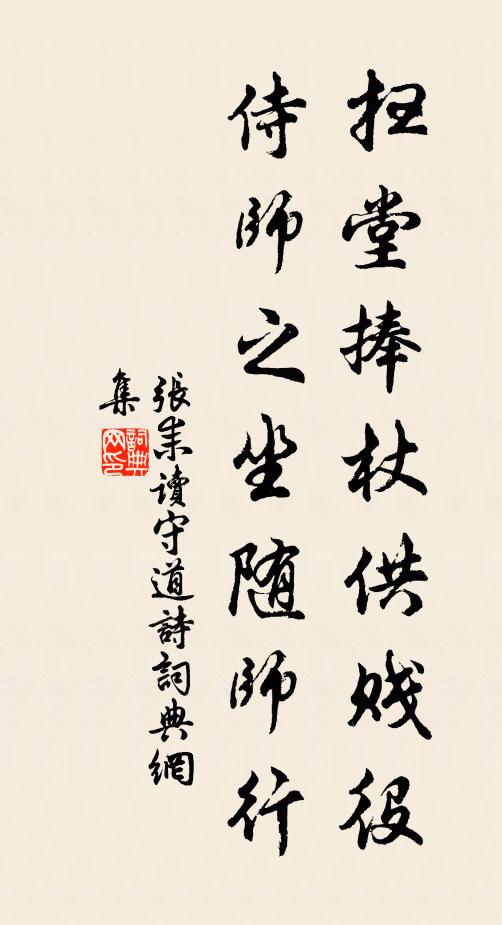 扫堂捧杖供贱役
侍師之坐随師行
張耒讀守道詩詞典網
集
詞典网印